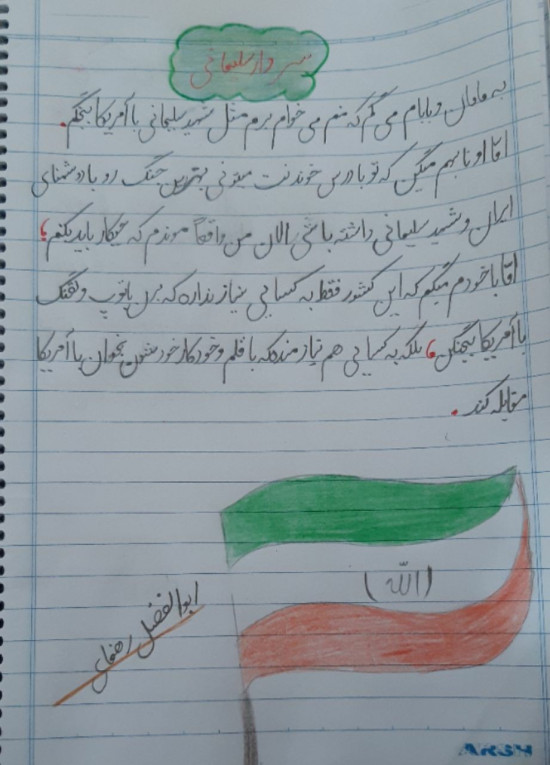 سردار سلیمانی
به مامان و بابام می گم که منم می خوام برم مثل شهید سلیمانی با آمریکا بجنگم.
امّا اونا بهم میگن که تو با درس خوندنت میتونی بهترین جنگ رو با دشمنای
ایران و شهید سلیمانی داشته باشی. الان من واقعاً موندم که چیکار باید بکنم؟
امّا با خودم میگم که این کشور فقط به کسایی نیاز نداره که برن با توپ و تفنگ
با آمریکا بجنگن، بلکه به کسایی هم نیازمنده که با قلم و خودکار خودشون بخوان با آمریکا
مقابله کند.
(الله)
ابوالفضل
ARSH